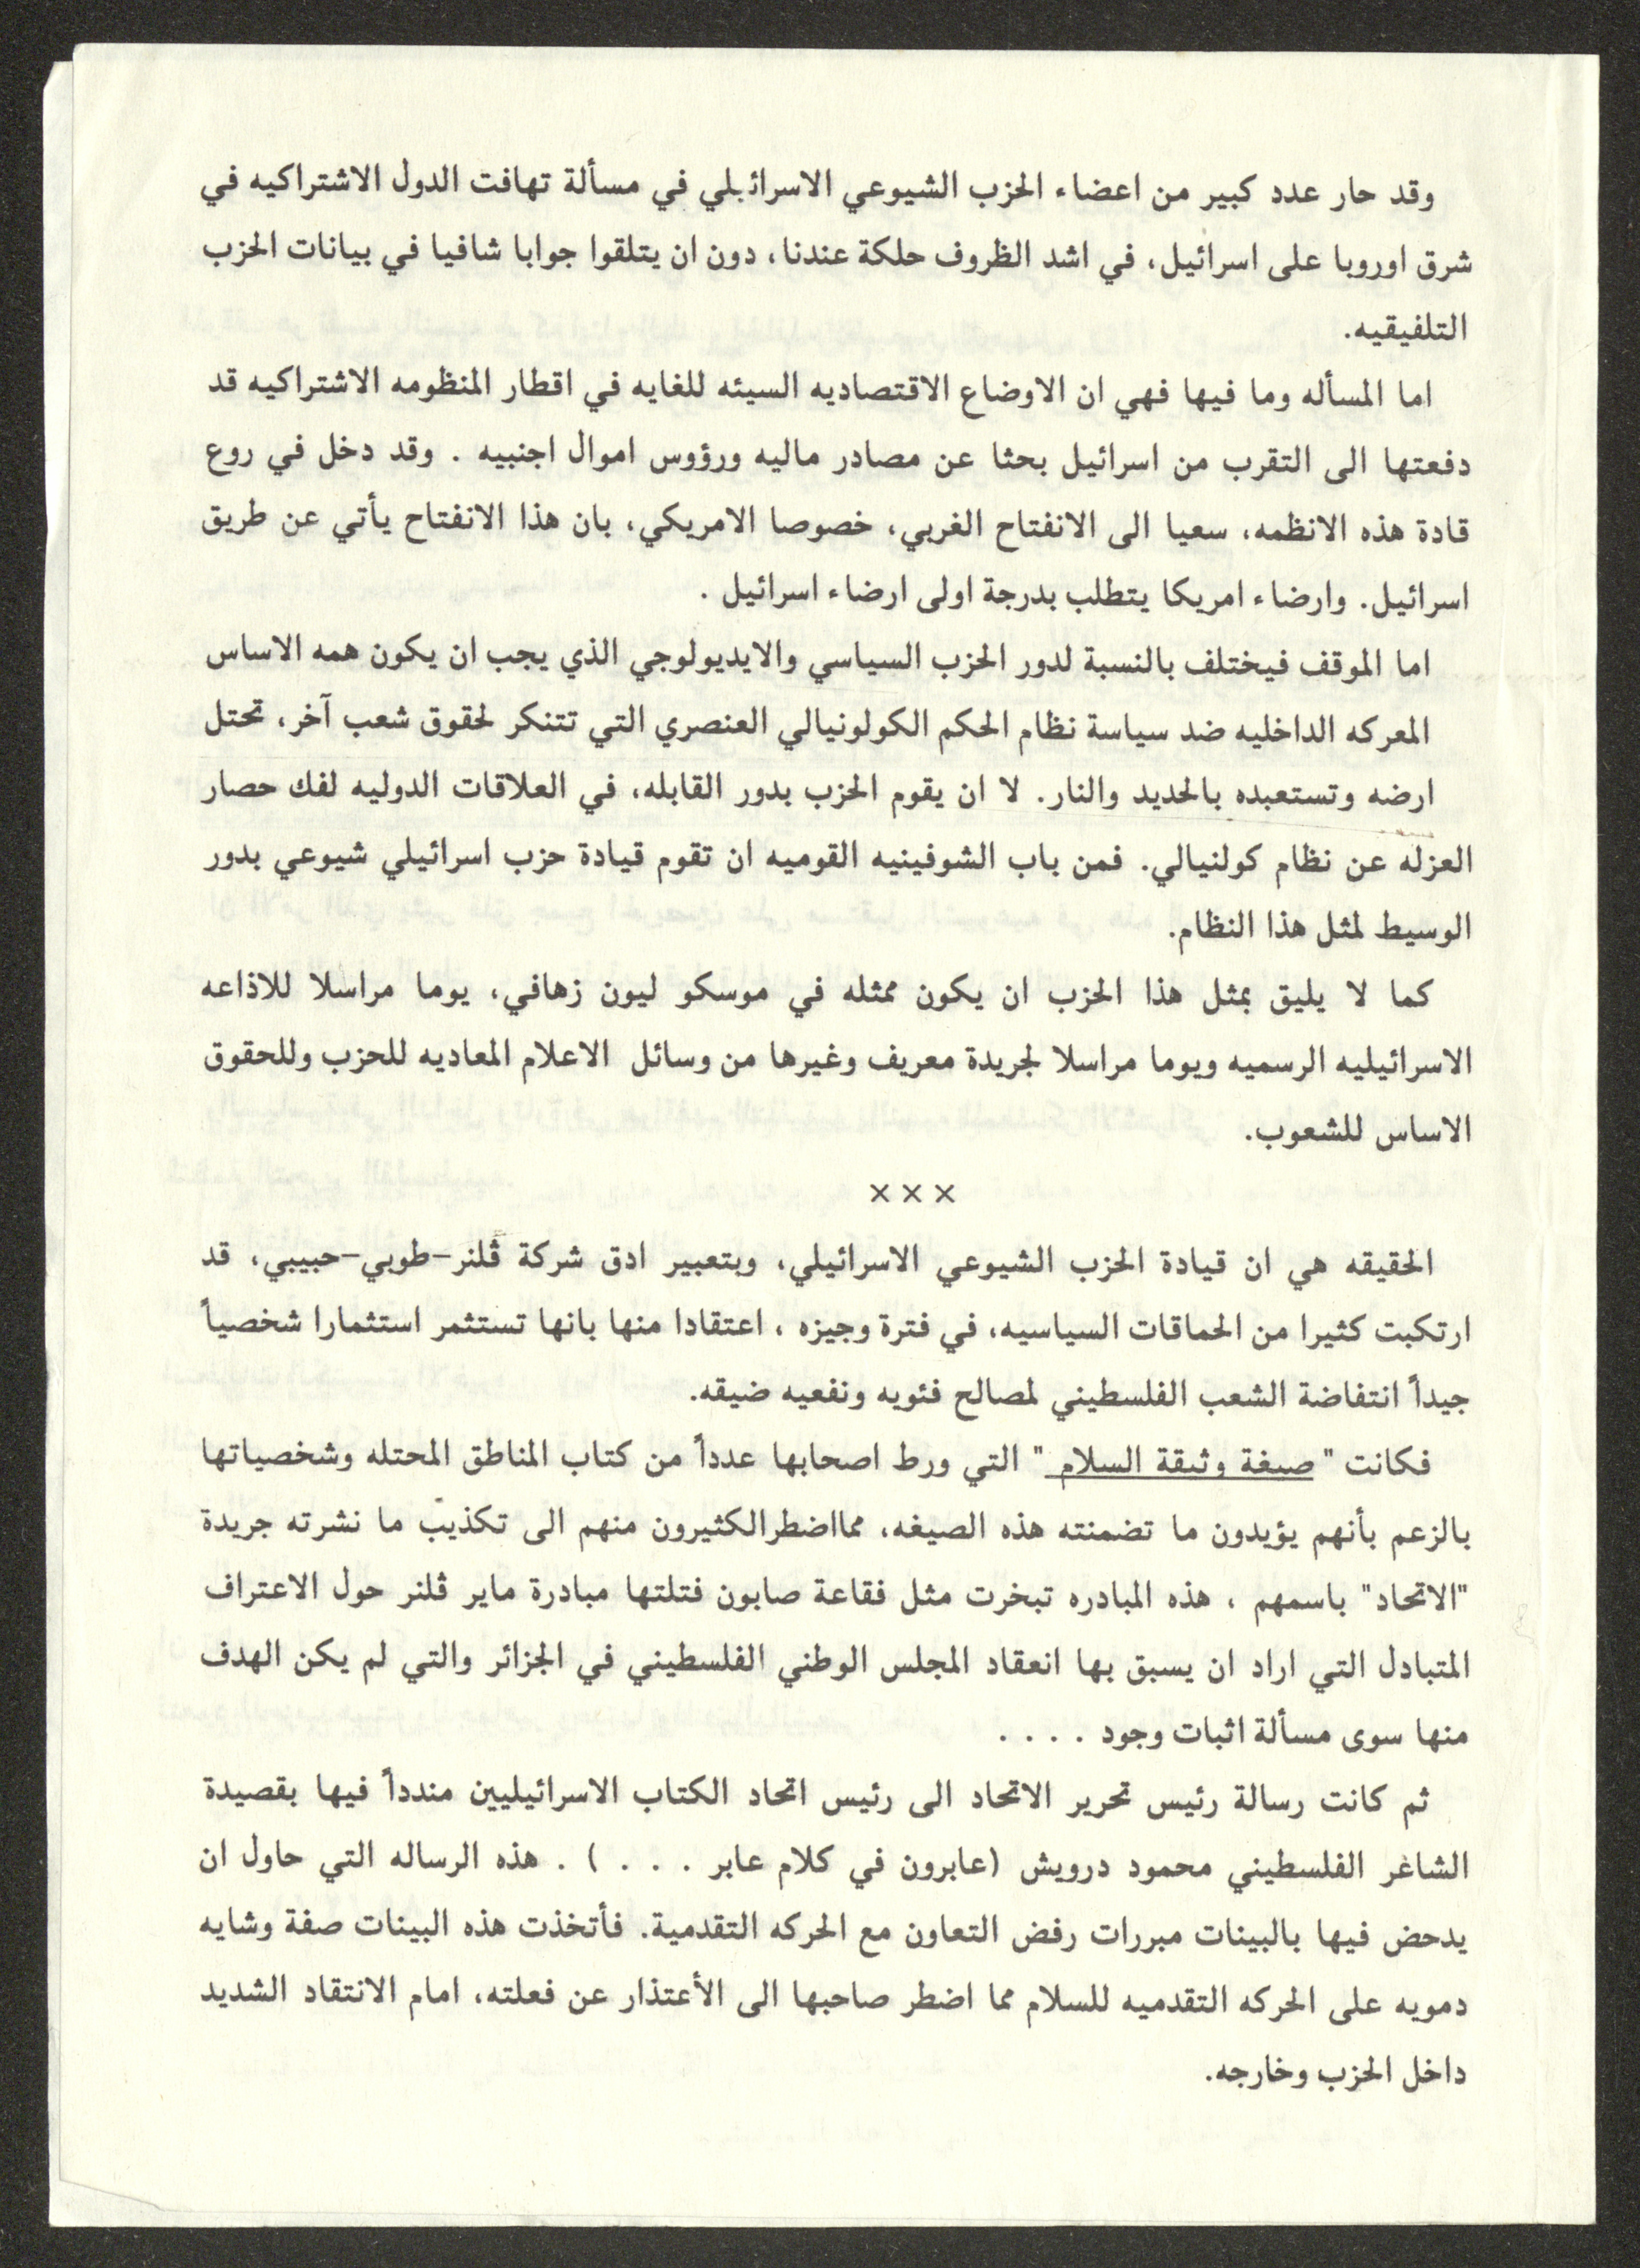 وقد حار عدد كبير من اعضاء الحزب الشيوعي الاسرائيلي في مسألة تهافت الدول الاشتراكيه في
شرق اوروبا على اسرائيل، في اشد الظروف حلكة عندنا، دون ان يتلقوا جوابا شافيا في بيانات الحزب
التلفيقيه.
اما المسأله وما فيها فهي ان الاوضاع الاقتصاديه السيئه للغايه في اقطار المنظومه الاشتراكيه قد
دفعتها الى التقرب من اسرائيل بحثا عن مصادر ماليه ورؤوس اموال اجنبيه . وقد دخل في روع
قادة هذه الانظمه، سعيا الى الانفتاح الغربي، خصوصا الامريكي، بان هذا الانفتاح يأتي عن طريق
اسرائيل. وارضاء امريكا يتطلب بدرجة اولى ارضاء اسرائيل .
اما الموقف فيختلف بالنسبة لدور الحزب السياسي والايديولوجي الذي يجب ان يكون همه الاساس
المعركه الداخليه ضد سياسة نظام الحكم الكولونيالي العنصري التي تتنكر لحقوق شعب آخر، تحتل
ارضه وتستعبده بالحديد والنار. لا ان يقوم الحزب بدور القابله، في العلاقات الدوليه لفك حصار
العزله عن نظام كولنيالي. فمن باب الشوفينيه القوميه ان تقوم قيادة حزب اسرائيلي شيوعي بدور
الوسيط لمثل هذا النظام.
كما لا يليق بمثل هذا الحزب ان يكون ممثله في موسكو ليون زهافي، يوما مراسلا للاذاعه
الاسرائيليه الرسميه ويوما مراسلا لجريدة معريف وغيرها من وسائل الاعلام المعاديه للحزب وللحقوق
الاساس للشعوب.
×××
الحقيقه هي ان قيادة الحزب الشيوعي الاسرائيلي، وبتعبير ادق شركة ڤلنر-طوبي-حبيبي، قد
ارتكبت كثيرا من الحماقات السياسيه، في فترة وجيزه ، اعتقادا منها بانها تستثمر استثمارا شخصياً
جيداً انتفاضة الشعب الفلسطيني لمصالح فئويه ونفعيه ضيقه.
فكانت " صيغة وثيقة السلام " التي ورط اصحابها عدداً من كتاب المناطق المحتله وشخصياتها
بالزعم بأنهم يؤيدون ما تضمنته هذه الصيغه، ممااضطرالكثيرون منهم الى تكذيب ما نشرته جريدة
"الاتحاد" باسمهم ، هذه المبادره تبخرت مثل فقاعة صابون فتلتها مبادرة ماير ڤلنر حول الاعتراف
المتبادل التي اراد ان يسبق بها انعقاد المجلس الوطني الفلسطيني في الجزائر والتي لم يكن الهدف
منها سوى مسألة اثبات وجود . . . .
ثم كانت رسالة رئيس تحرير الاتحاد الى رئيس اتحاد الكتاب الاسرائيليين مندداً فيها بقصيدة
الشاغر الفلسطيني محمود درويش (عابرون في كلام عابر . . . ) . هذه الرساله التي حاول ان
يدحض فيها بالبينات مبررات رفض التعاون مع الحركه التقدمية. فأتخذت هذه البينات صفة وشايه
دمويه على الحركه التقدميه للسلام مما اضطر صاحبها الى الأعتذار عن فعلته، امام الانتقاد الشديد
داخل الحزب وخارجه.